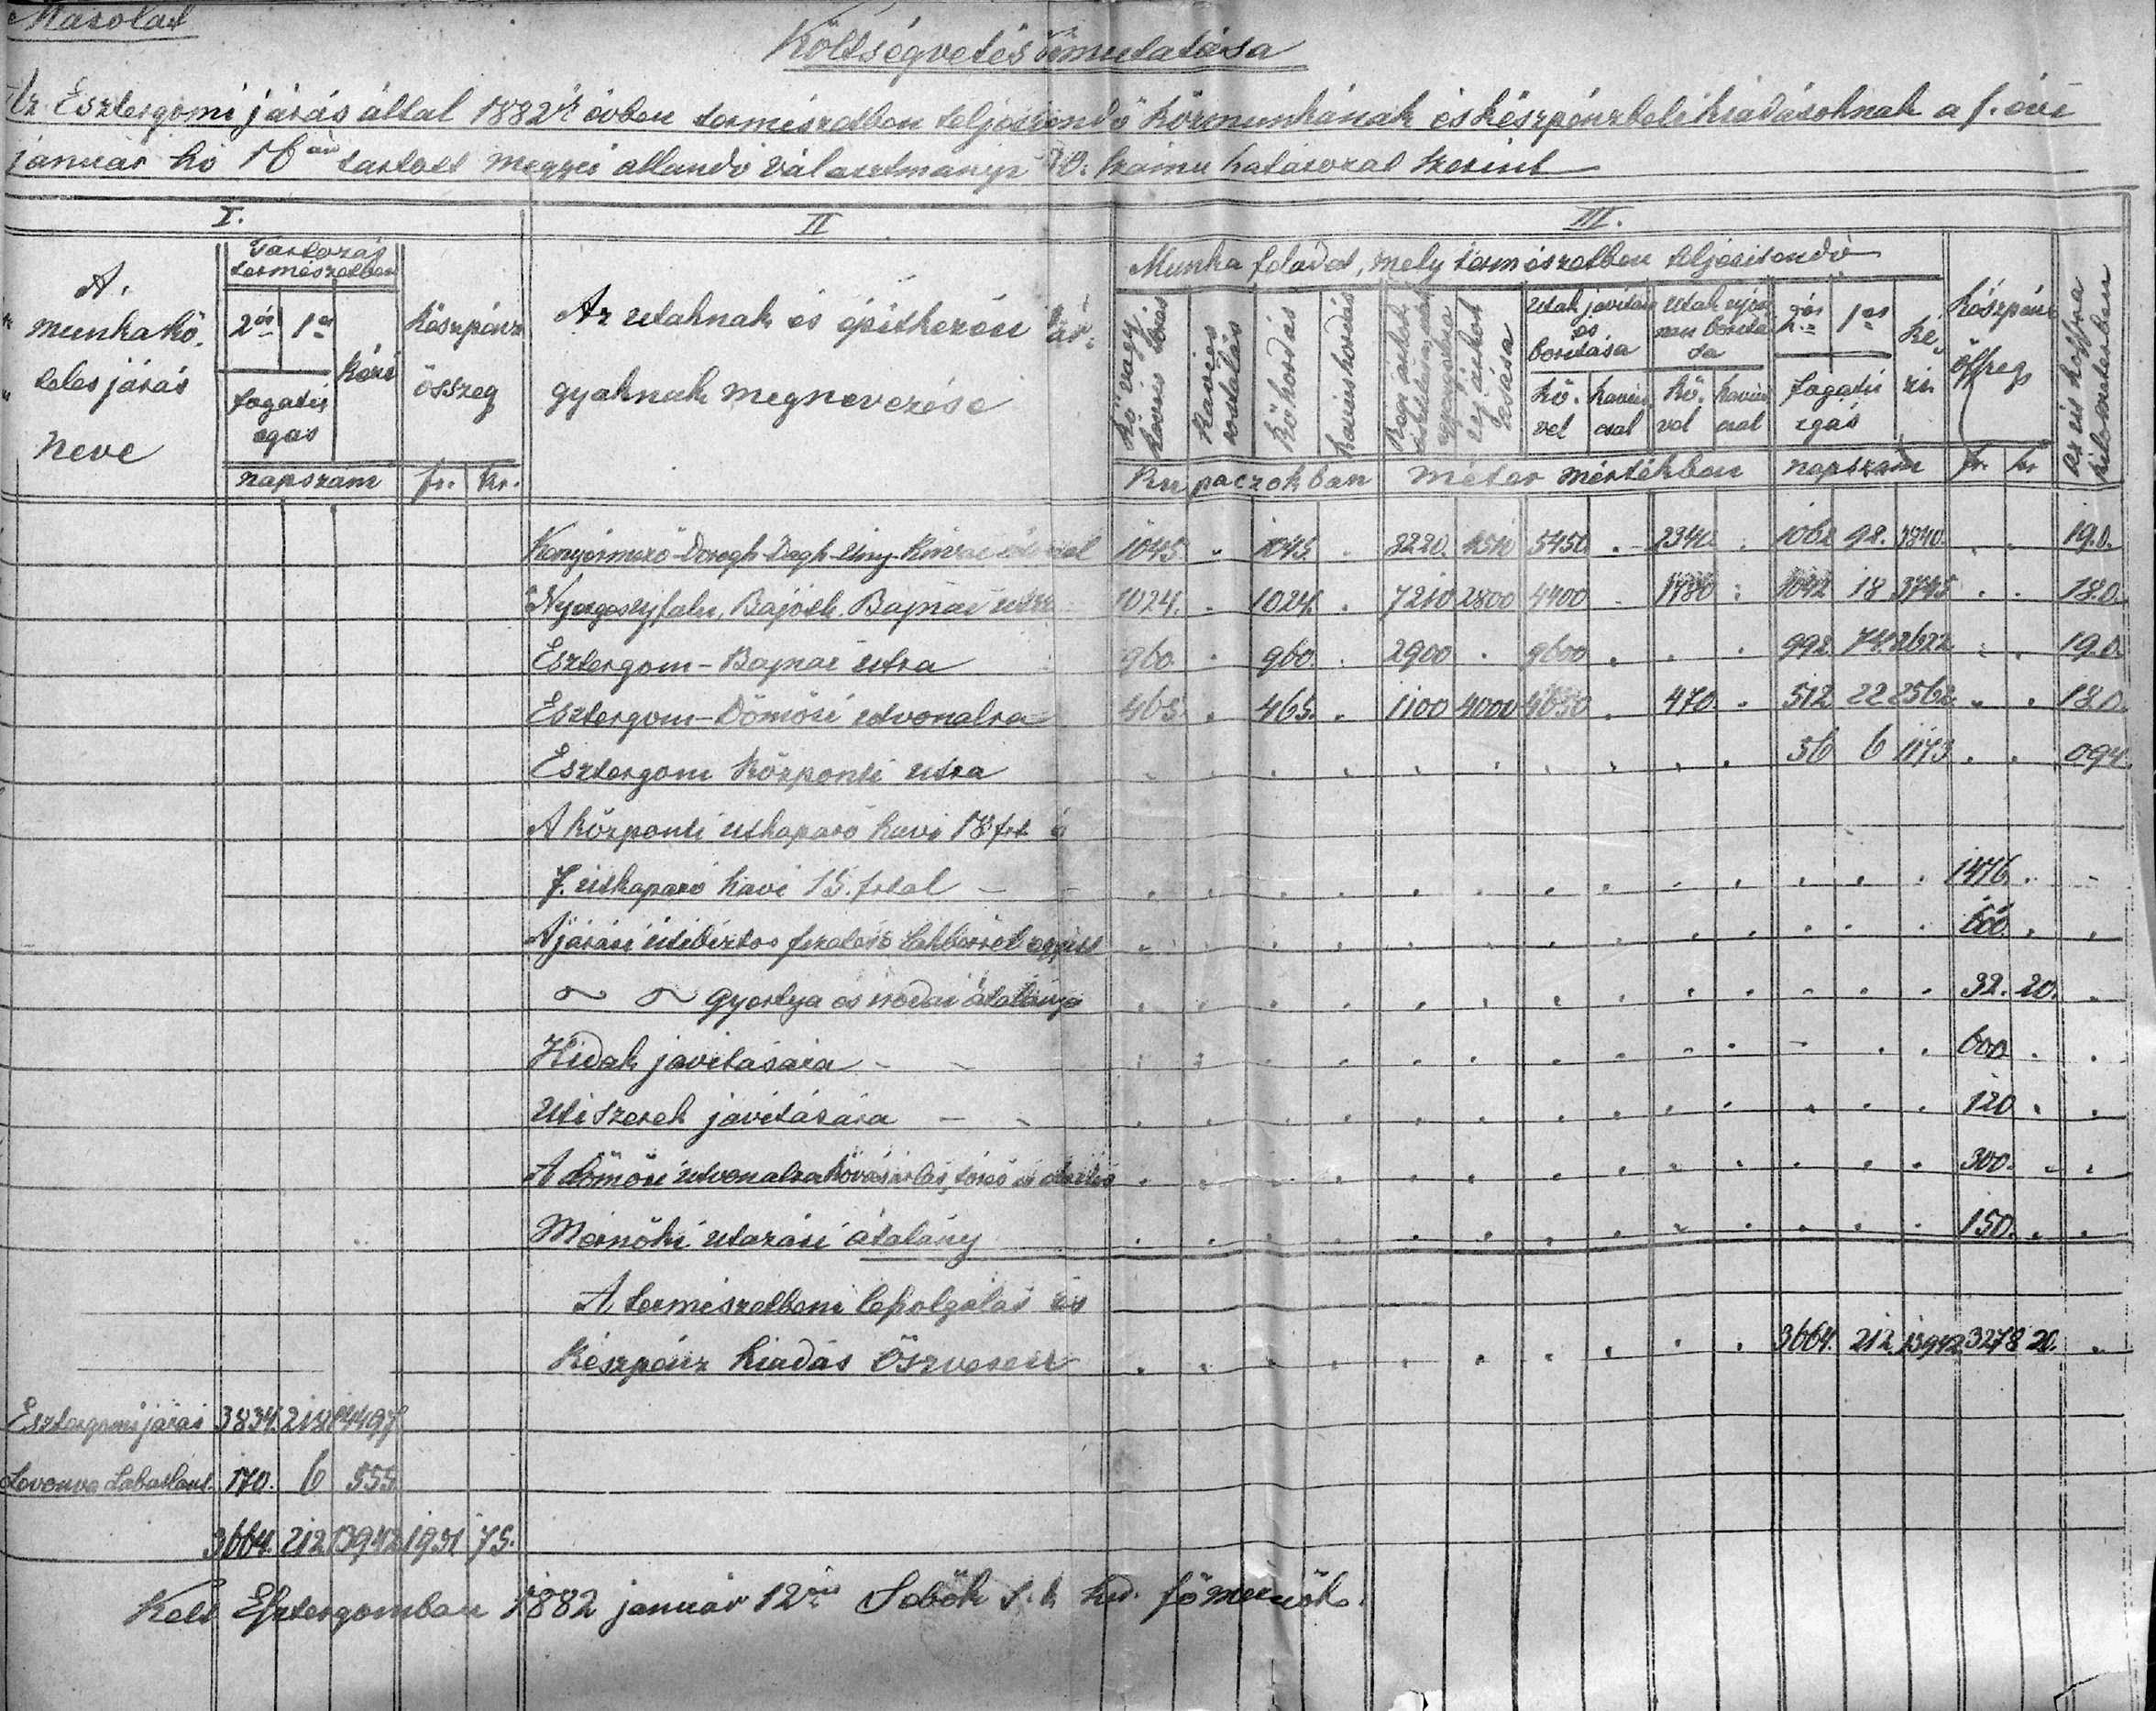 Másolat
Költségvetés kimutatása
Az Esztergomi járás által 1882ik évben természetben teljesitendő közmunkának és készpénzbeli kiadásoknak a f. évi
január hó 16án tartott megyei állandó választmányi számu határozat szerint
I. II III.
A.
munkakö-
teles járás
neve
Tartozás
természetben
2ös 1es
fogatú
igás
kézi
napszám
készpénz
összeg
fr. kr.
Az utaknak és épitkezési tár-
gyaknak megnevezése
Munka feladat, mely természetben teljesitendő
Kő vagy kavics törés
Kavics rostálás
Kőhordás
Kavicshordás
uj árkok ásása
Utak javitása
és
boritása
kő-
vel
kavics
csal
Utak ujon-
nan boritá
sa
kő-
vel
kavics
csal
2ös 1es
fogatú
igás
ké-
zi
Készpénz
összeg
Az út hossza
kilometerben
Kupaczokban méter mértékben napszám fr. kr
Kenyérmező-Dorogh-Dágh-Uny- 1045. " 1045. . 3220. 4510 5450 . 2340. . 1062 98. 3840. . . 19.0.
Nyergesujfalu, Bajóth. Bajnai utra 1024. . 1024. . 7210 2800 4400 . 1780 . 1042 18 3745 . . 18.0.
Esztergom-Bajnai utra 960. . 960. . 2900 . 9600 . . . 992 74 2622 . . 19.0.
Esztergom-Dömösi utvonalra 465. . 465. . 1100 4000 4650 . 470. . 512 22 2562. . . 18.0.
Esztergom központi utra . . . . . . . . . . 56 6 1173 . . 094.
A központi utkaparó havi 18 frt és
7. útkaparó havi 15. frtal 1476. .
A járási útibiztos fizetése lakbérrel együtt 600. .
~ ~ gyertya és irodai átalánya 32. 20.
Hidak javitására 600 .
Uti szerek javitására 120 .
A dömösi utvonalra kővásárlás, törés és 300. .
Mérnöki utazási átalány 150. .
A természetbeni leszolgálás és
készpénz kiadás összvesen 3664. 212. 13942 3278 20.
Esztergomi járás 3834. 218 14497
Levonva Lábatlant. 170. 6 555.
3664. 212 13942 1931 75.
Kelt Esztergomban 1882 január 12én Sebők s. k. főmérnök.